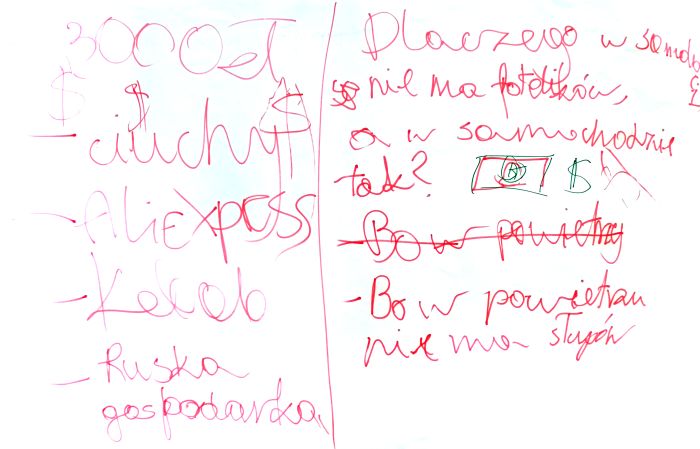 3000zł
$ $ $
- ciuchy
- AliExpress
- Kebab
- Ruska
gospodarka
Dlaczego w
nie ma fotelików,
a w samochodzie
tak? $
- Bo w powietrzu
- Bo w powietrzu
nie ma słupów